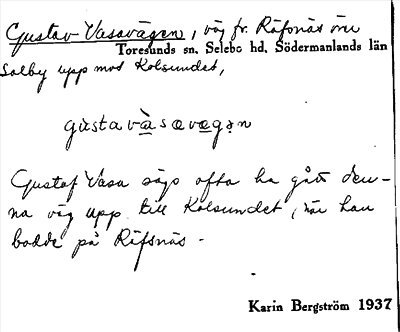 Gustav Vasavägen, väg fr. Räfsnäs över
Toresunds sn. Selebo hd. Södermanlands län
Solby upp mot Kolsundet,
gustavàsavegən
Gustaf Vasa sägs ofta ha gått den-
na väg upp till Kolsundet, när han
bodde på Räfsnäs.
Karin Bergström 1937